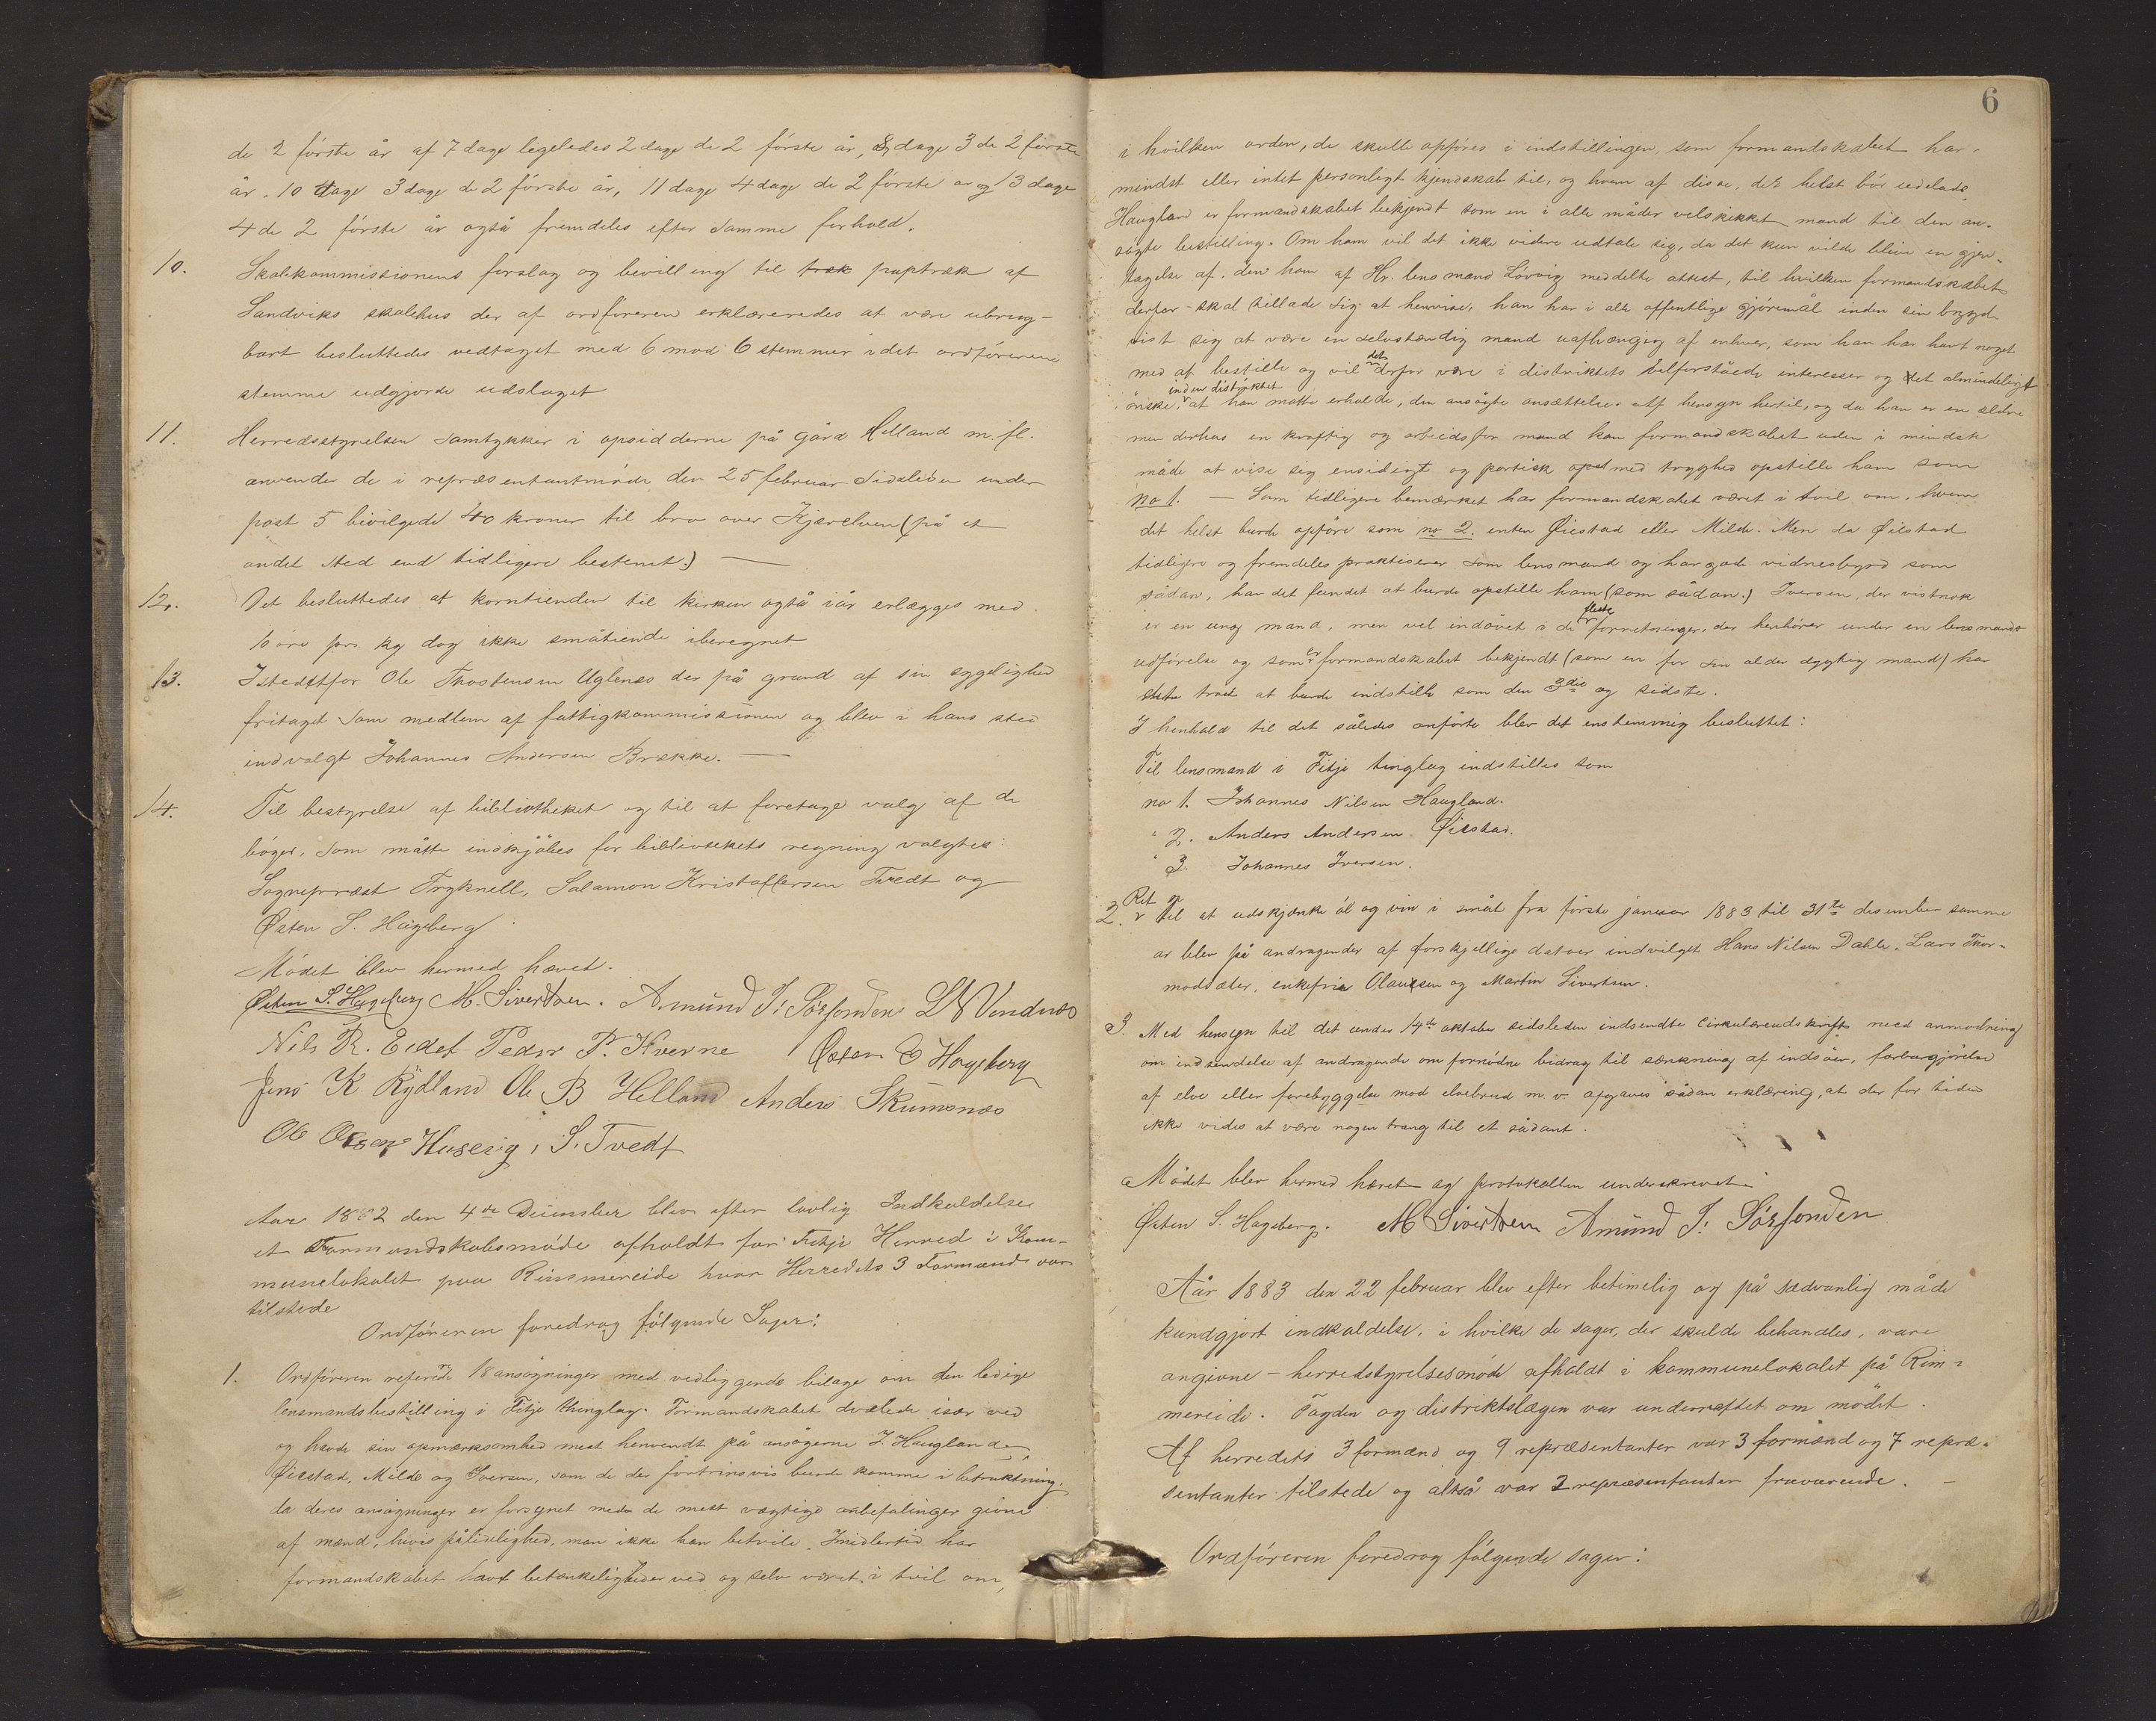 de 2 förste år af 7 dage legeledes 2 dage de 2 förste år, 8 dage 3 de 2 förste
år. 10 dage 3 dage de 2 förste år, 11 dage 4 dage de 2 förste ar og 3 dage
4 de 2 förste år også fremdeles efter samme forhold.
10. Skolekommissionens forslag og bevilling til træk paptræk af
Sandviks skolehus der af ordföreren erklæreredes at være ubrug-
bart besluttedes vedtaget med 6 mod 6 stemmer idet ordförerens
stemme udgjorde udslaget
11. Herredsstyrelsen samtykker i opsidderne på gård Helland m. fl.
anvender de i repræsentantmöde den 25 februar sidsleden under
post 5 bevilgede 40 kroner til bro over Kjærelven (på et
andet sted end tidligere bestemt.) —
12. Det besluttedes at korntienden til kirken også iår erlægges med
10 öre pr. kg dog ikke småtiende iberegnet
13. Istedetfor Ole Thostensen Uglenes der på grund af sin sygelighed
fritaget som medlem af fattigkommissionen og blev i hans sted
indvalgt Johannes Andersen Brække. —
14. Til bestyrelse af bibliotheket og til at foretage valg af de
böger, som måtte indkjöbes for bibliotekets regning valgtes:
Sognepræst Fryknell, Salamon Kristoffersen Tvedt og
Østen S. Hageberg
Mödet blev hermed hævet.
Østen S. Hageberg M. Sivertsen. Amund I. Sörfonden L N Vendnes
Nils R. Eidet Peder P. Hverne Østen E Hageberg
Jens K Rydland Ole B Helland Anders Skumsnes
Ole Olsen Husevig, S. Tvedt
Aar 1882 den 4de December blev efter lovlig Indkaldelse
et Formandskabsmöde afholdt for Fitje Herred i Kom-
munelokalet paa Rimmereide hvor Herredets 3 Formænd var
tilstede
Ordföreren foredrog fölgende Sager:
1. Ordföreren refererede 18 ansögninger med vedliggende bilage om den ledige
lensmandsbestilling i Fitje thinglag. Formandskabet dvælede især ved
og havde sin opmærksomhed mest henvendt på ansögerne J. Haugland,
Øiestad, Milde og Iversen, som de der fortrinsvis burde komme i betraktning,
da deres ansögninger er forsynet med de mest vægtige anbefalinger givne
af mænd, hvis pålidelighed, man ikke kan betvile. Imidlertid har
formandskabet havt betænkeligheder ved og selv været i tvil om,
6
i hvilken orden, de skulle opföres i indstillingen, som formandskabet har
mindst eller intet personligt kjendskab til, og hvem af disse, det helst bör udelade.
Haugland er formandskabet bekjendt som en i alle måder velskikket mand til den an-
sögte bestilling. Om ham vil det ikke videre udtale sig, da det kun vilde blive en gjen-
tagelse af den ham af Hr. lensmand Lövvig meddelte attest, til hvilken formandskabet
derfor skal tillade sig at henvise, han har i alle offentlige gjöremål inden sin bygd
vist sig at være en selvstændig mand uafhængig af enhver, som han har havt noget
med at bestille og vil det derfor være i distriktets velforståede interesser og det almindeligt
önske, inden distriktet at han måtte erholde, den ansögte ansættelse. Af hensyn hertil, og da han er en ældre
men derhos en kraftig og arbeidsför mand kan formandskabet uden i mindste
måde at vise sig ensidigt og partisk med tryghed opstille ham som
no 1. — Som tidligere bemærket har formandskabet været i tvil om, hvem
det helst burde opföre som no 2. enten Øiestad eller Milde. Men da Øiestad
tidligere og fremdeles praktiserer som lensmand og har gode vidnesbyrd som
sådan, har det fundet at burde opstille ham (som sådan.) Iversen, der vistnok
er en ung mand, men vel indövet i de fleste forretninger, der henhörer under en lensmands
udförelse og som er formandskabet bekjendt (som en for sin alder dygtig mand) har
dette troet at burde indstille som den 3die og sidste.
I henhold til det således anförte blev det enstemmig besluttet:
Til lensmand i Fitje tinglag indstilles som
no 1. Johannes Nilsen Haugland.
" 2. Anders Andersen Øiestad.
" 3. Johannes Iversen.
2. Ret til at udskjænke öl og vin i småt fra förste januar 1883 til 31te desember samme
ar blev på andragender af forskjellige datoer indvilget Hans Nilsen Dahle, Lars Thor-
modsæter, enkefrue Olaussen og Martin Sivertsen.
3. Med hensyn til det under 14de oktober sidsleden indsendte cirkulæreudskrift med anmodning
om indsendelse af andragende om fornödne bidrag til sænkning af indsöer, farbargjörelse
af elve eller forebyggelse mod elvebrud m. v. afgaves sådan erklæring, at der for tiden
ikke vides at være nogen trang til et sådant.
Mödet blev hermed hævet og protokollen underskrevet
Østen S. Hageberg. M Sivertsen Amund I. Sörfonden
Aår 1883 den 22 februar blev efter betimelig og på sædvanlig måde
kundgjort indkaldelse, i hvilke de sager, der skulde behandles, vare
angivne — herredstyrelsesmöde afholdt i kommunelokalet på Rim-
mereide. Fogden og distriktslægen var underrettet om mödet.
Af herredets 3 formænd og 9 repræsentanter var 3 formænd og 7 repræ-
sentanter tilstede og altså var 2 repræsentanter fraværende. —
Ordföreren foredrog fölgende sager: